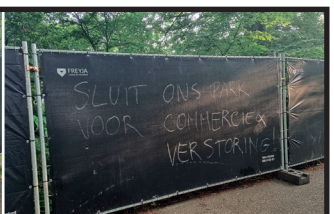 FREYJA
SLUIT ONS PARK
VOOR COMMERCIE &
VERSTORING!